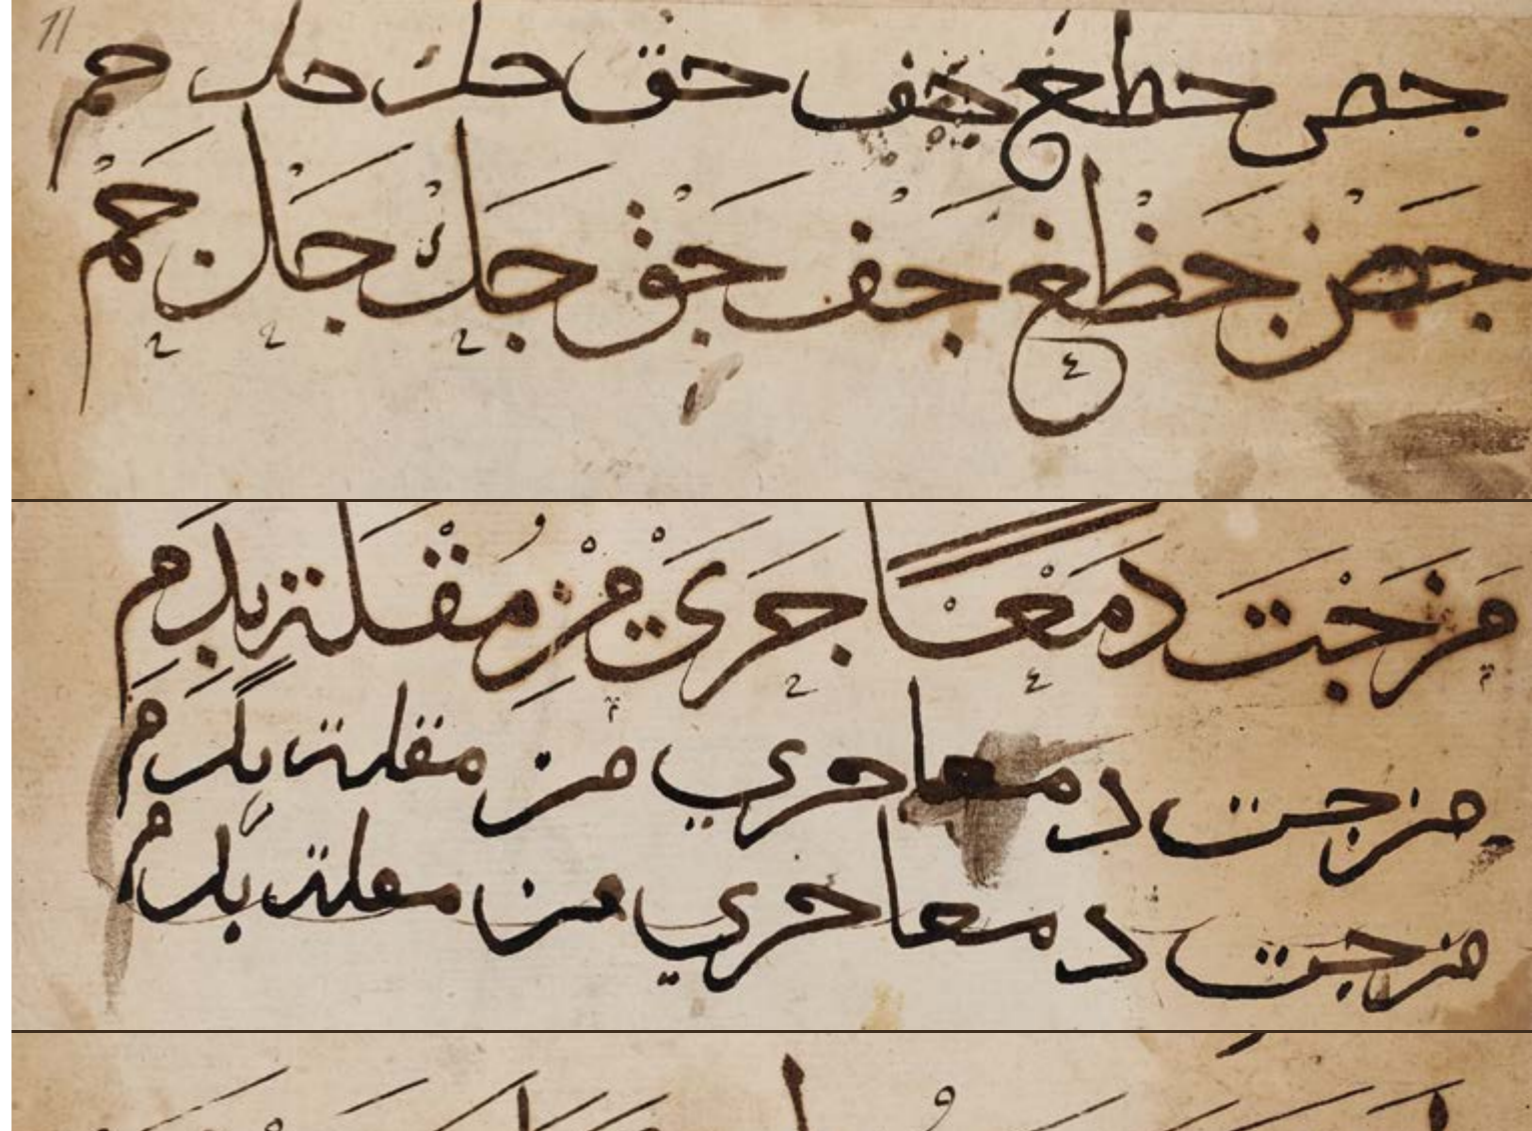 11
حص حطغ حف حق حك حل حم
جَضْ جَظْغ جَفْ جَقْ جَكْ جَلْ جَمْ
مَزَجْتَ دَمْعًا جَرَىٰ مِنْ مُقْلَةٍ بِدَمِ
مزجت دمعا جري من مقلة بدم
مزجت دمعا جري من مقلة بدم